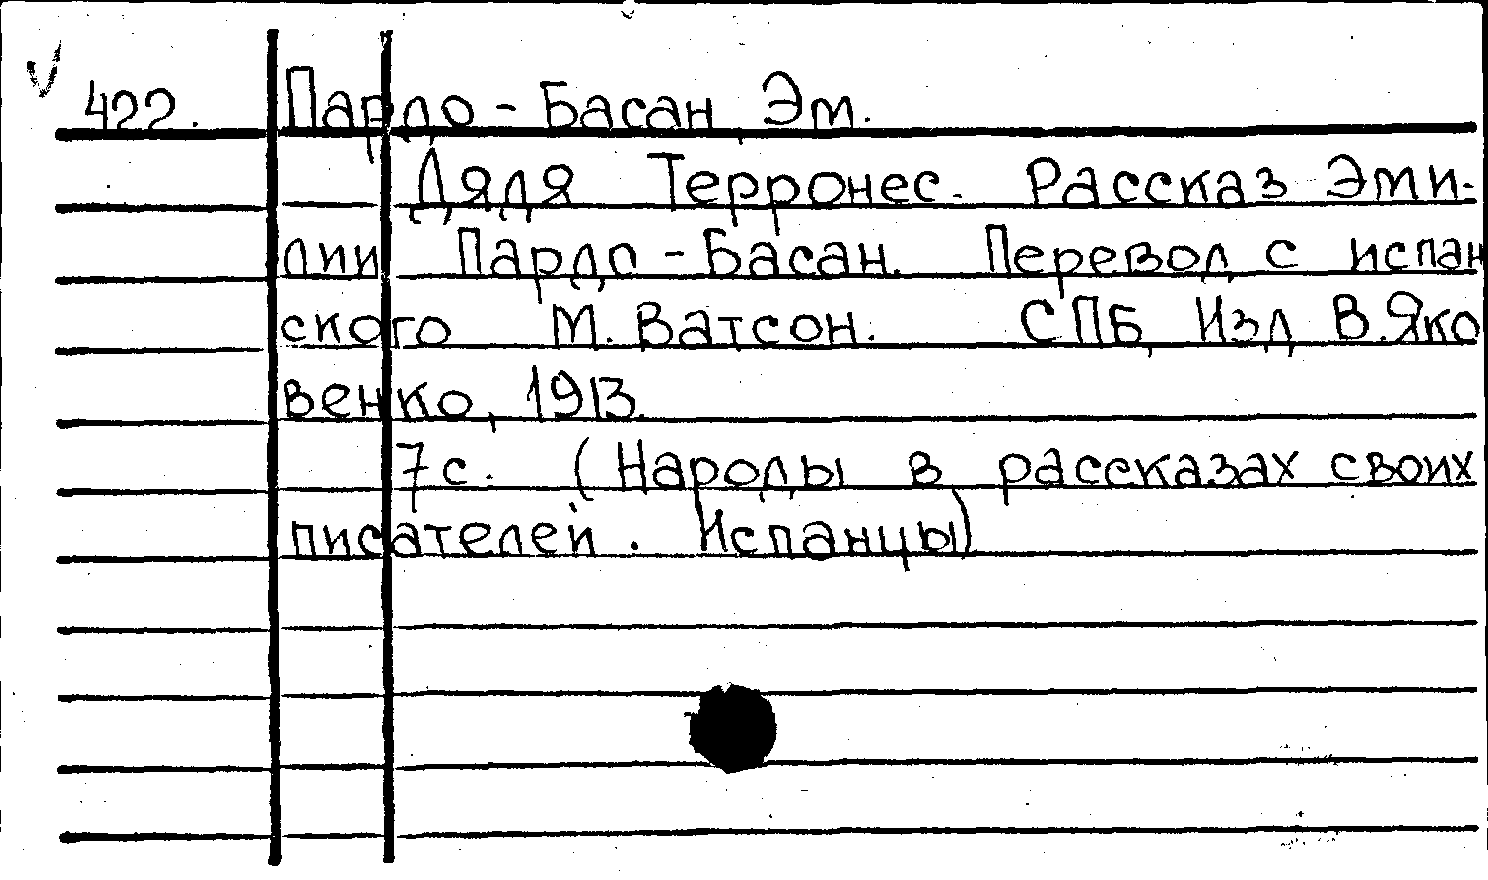 422. Пардо - Басан, Эм.
Дядя Терронес. Рассказ Эми-
лии Пардо - Басан. Перевод с испан
ского М. Ватсон. СПБ, Изд. В. Яко
венко, 1913.
7 с. (Народы в рассказах своих
писателей. Испанцы)